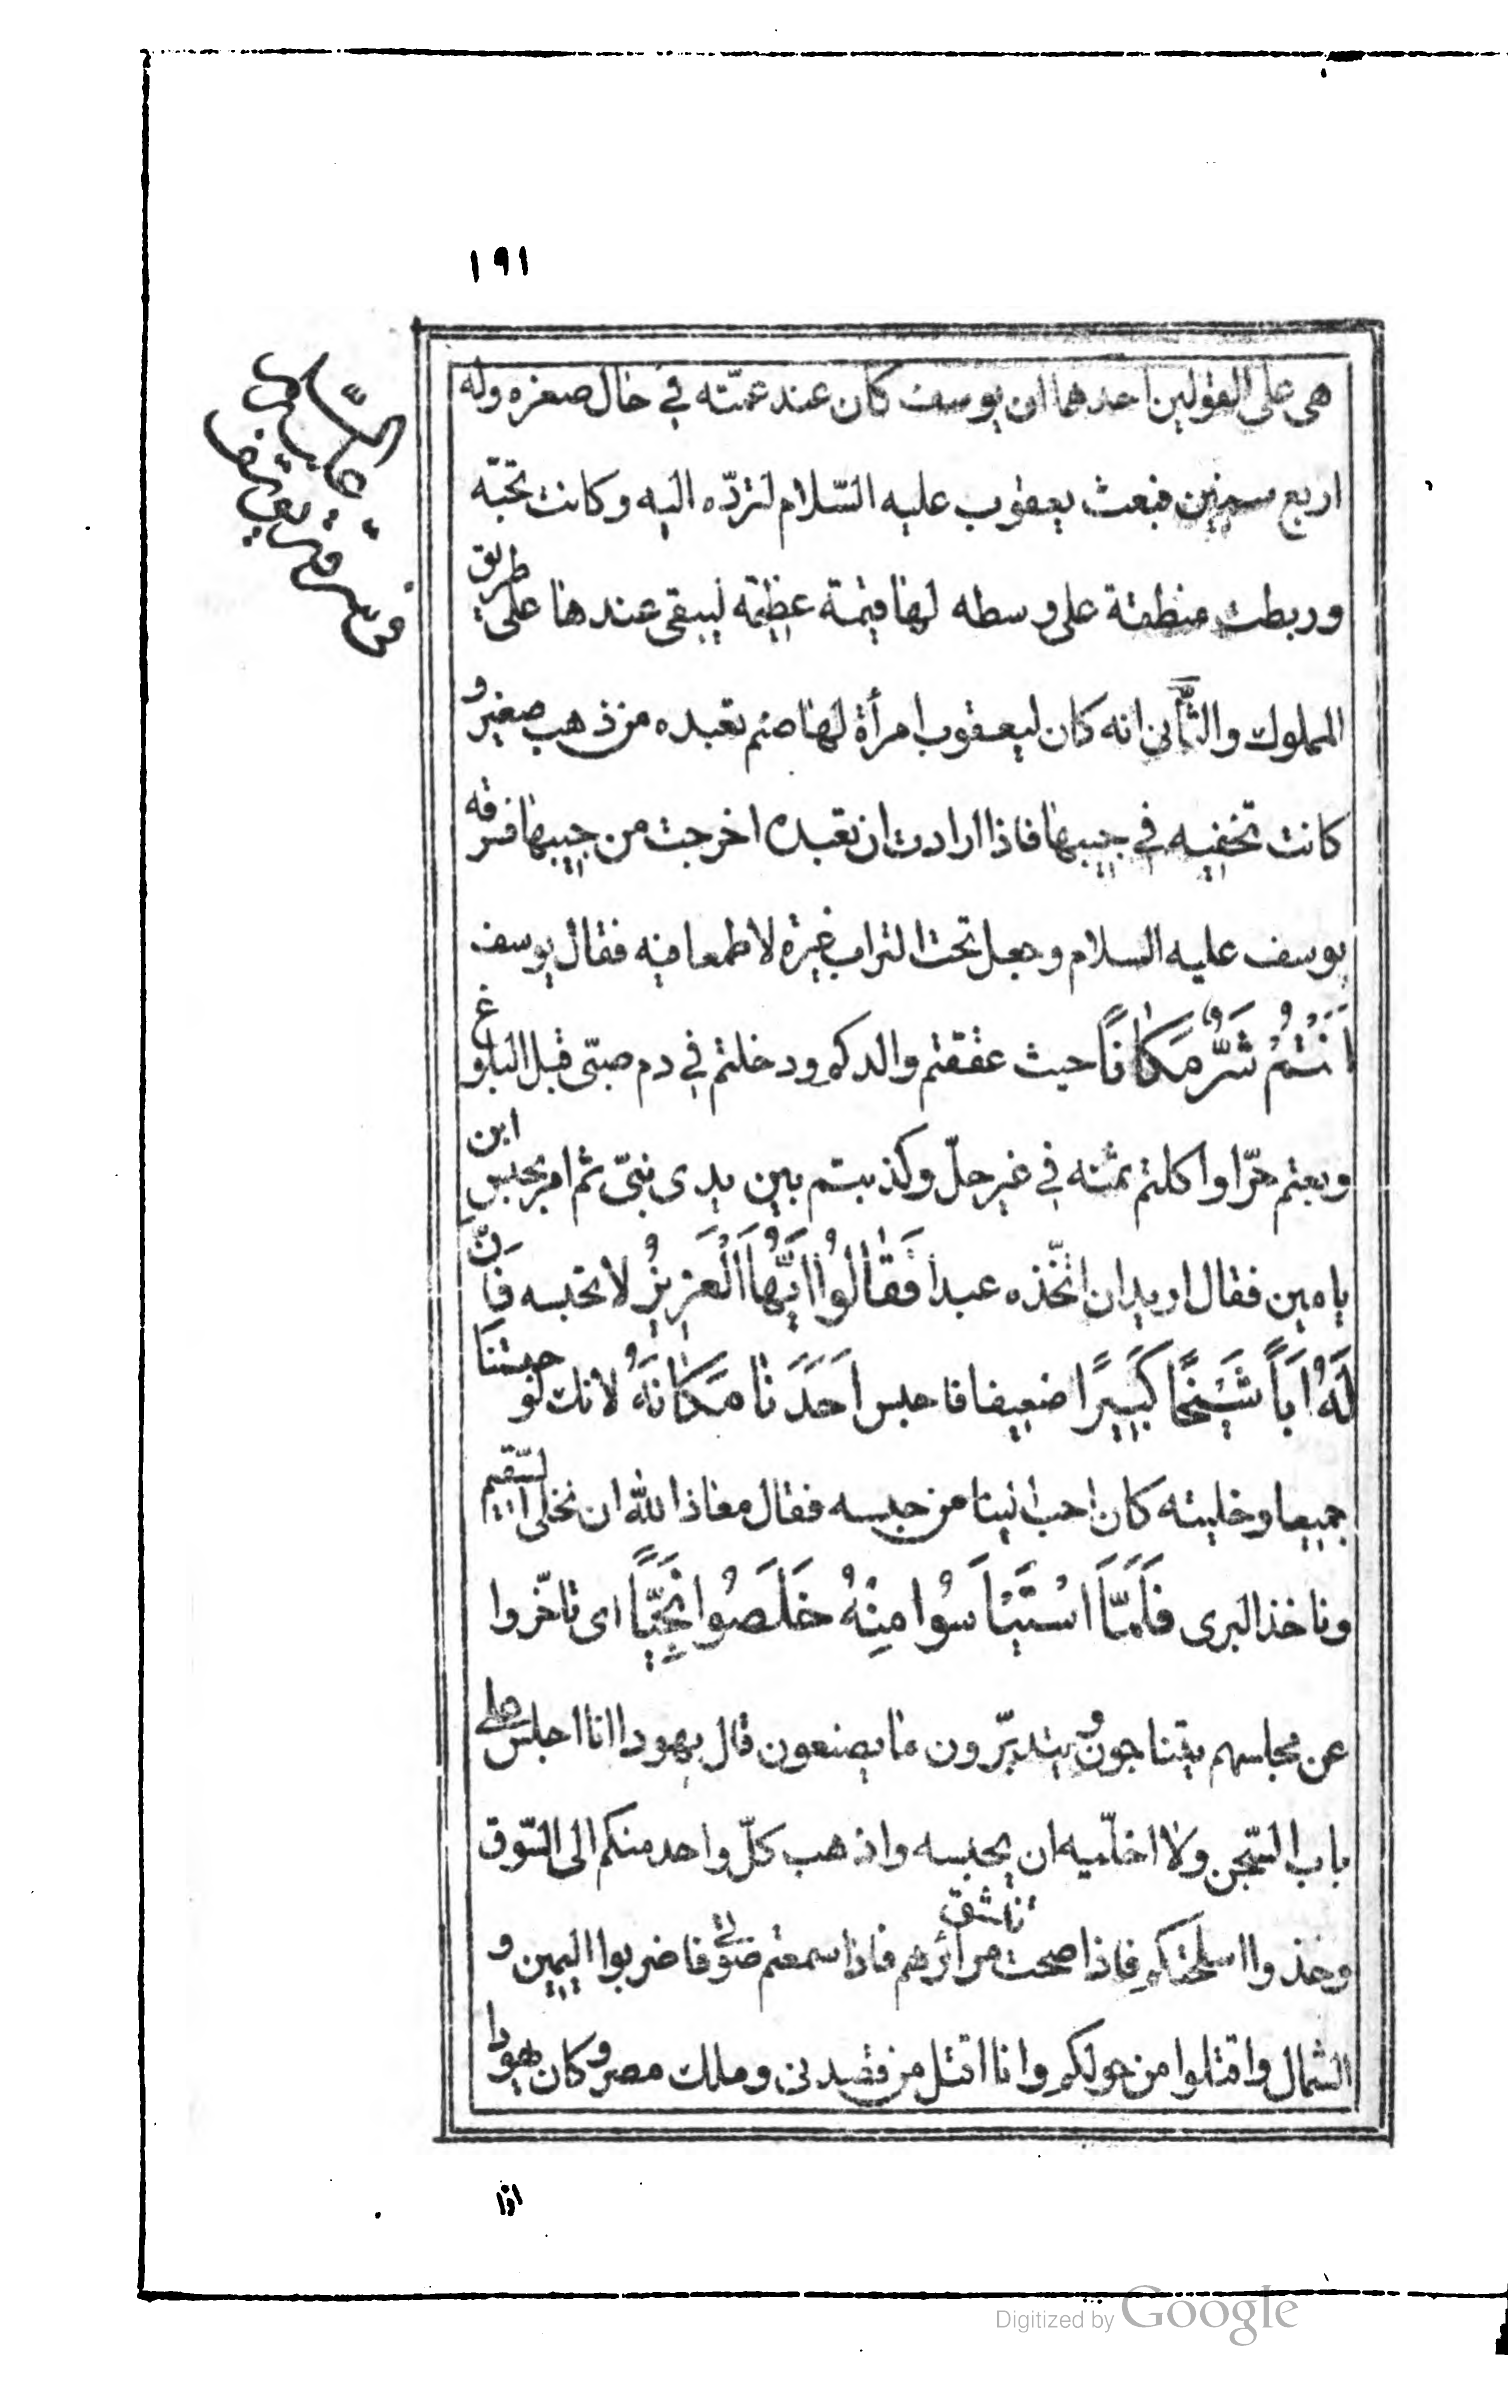 ١٩١
هى على القولين احدهما ان يوسف كان عند عمّته فى حال صغره وله
اربع سنين فبعث يعقوب عليه السّلام لتردّه اليه وكانت تحبّه
وربطت منطقة على وسطه لها قيمة عظيمه ليبقى عندها على طريق
المملوك والثّانى انه كان ليعقوب امرأة لها صنم تعبده من ذهب صغير و
كانت تخفيه فى جيبها فاذا ارادت ان تعبده اخرجت من جيبها فسرقه
يوسف عليه السلام وجعل تحت التراب غيرة لا طمعا فيه فقال يوسف
اَنْتُمْ شَرٌّ مَكَانًا حيث عققتم والدكم ودخلتم فى دم صبىّ قبل البلوغ
وبعتم حرّا واكلتم ثمنه فى غير حلّ وكذبتم بين يدى نبىّ ثم امر بحبس ابن
يامين فقال اريد ان اتّخذه عبدا فَقَالُوا اَيُّهَا الْعَزِيزُ لا تحبسه فَاِنَّ
لَهُ اَبًا شَيْخًا كَبِيرًا ضعيفا فاحبس اَحَدَنَا مَكَانَهُ لانك لو حبستنا
جميعا وخليته كان احب الينا من حبسه فقال معاذ الله ان نخلى السّقيم
وناخذ البرى فَلَمَّا اسْتَيْاَسُوا مِنْهُ خَلَصُوا نَجِيًّا اى تاخّروا
عن مجالسهم يتناجون و يتدبّرون ما يصنعون قال يهودا انا اجلس على
باب السّجن ولا اخلّيه ان يحبسه واذهب كلّ واحد منكم الى السّوق
وخذوا اسلحتكم فاذا صحت ناشق مرائرهم فاذا سمعتم صوتى فاضربوا اليمين و
الشمال واقتلوا من حولكم وانا اقتل من قصدنى وملك مصر وكان يهودا
اذا
Digitized by Google